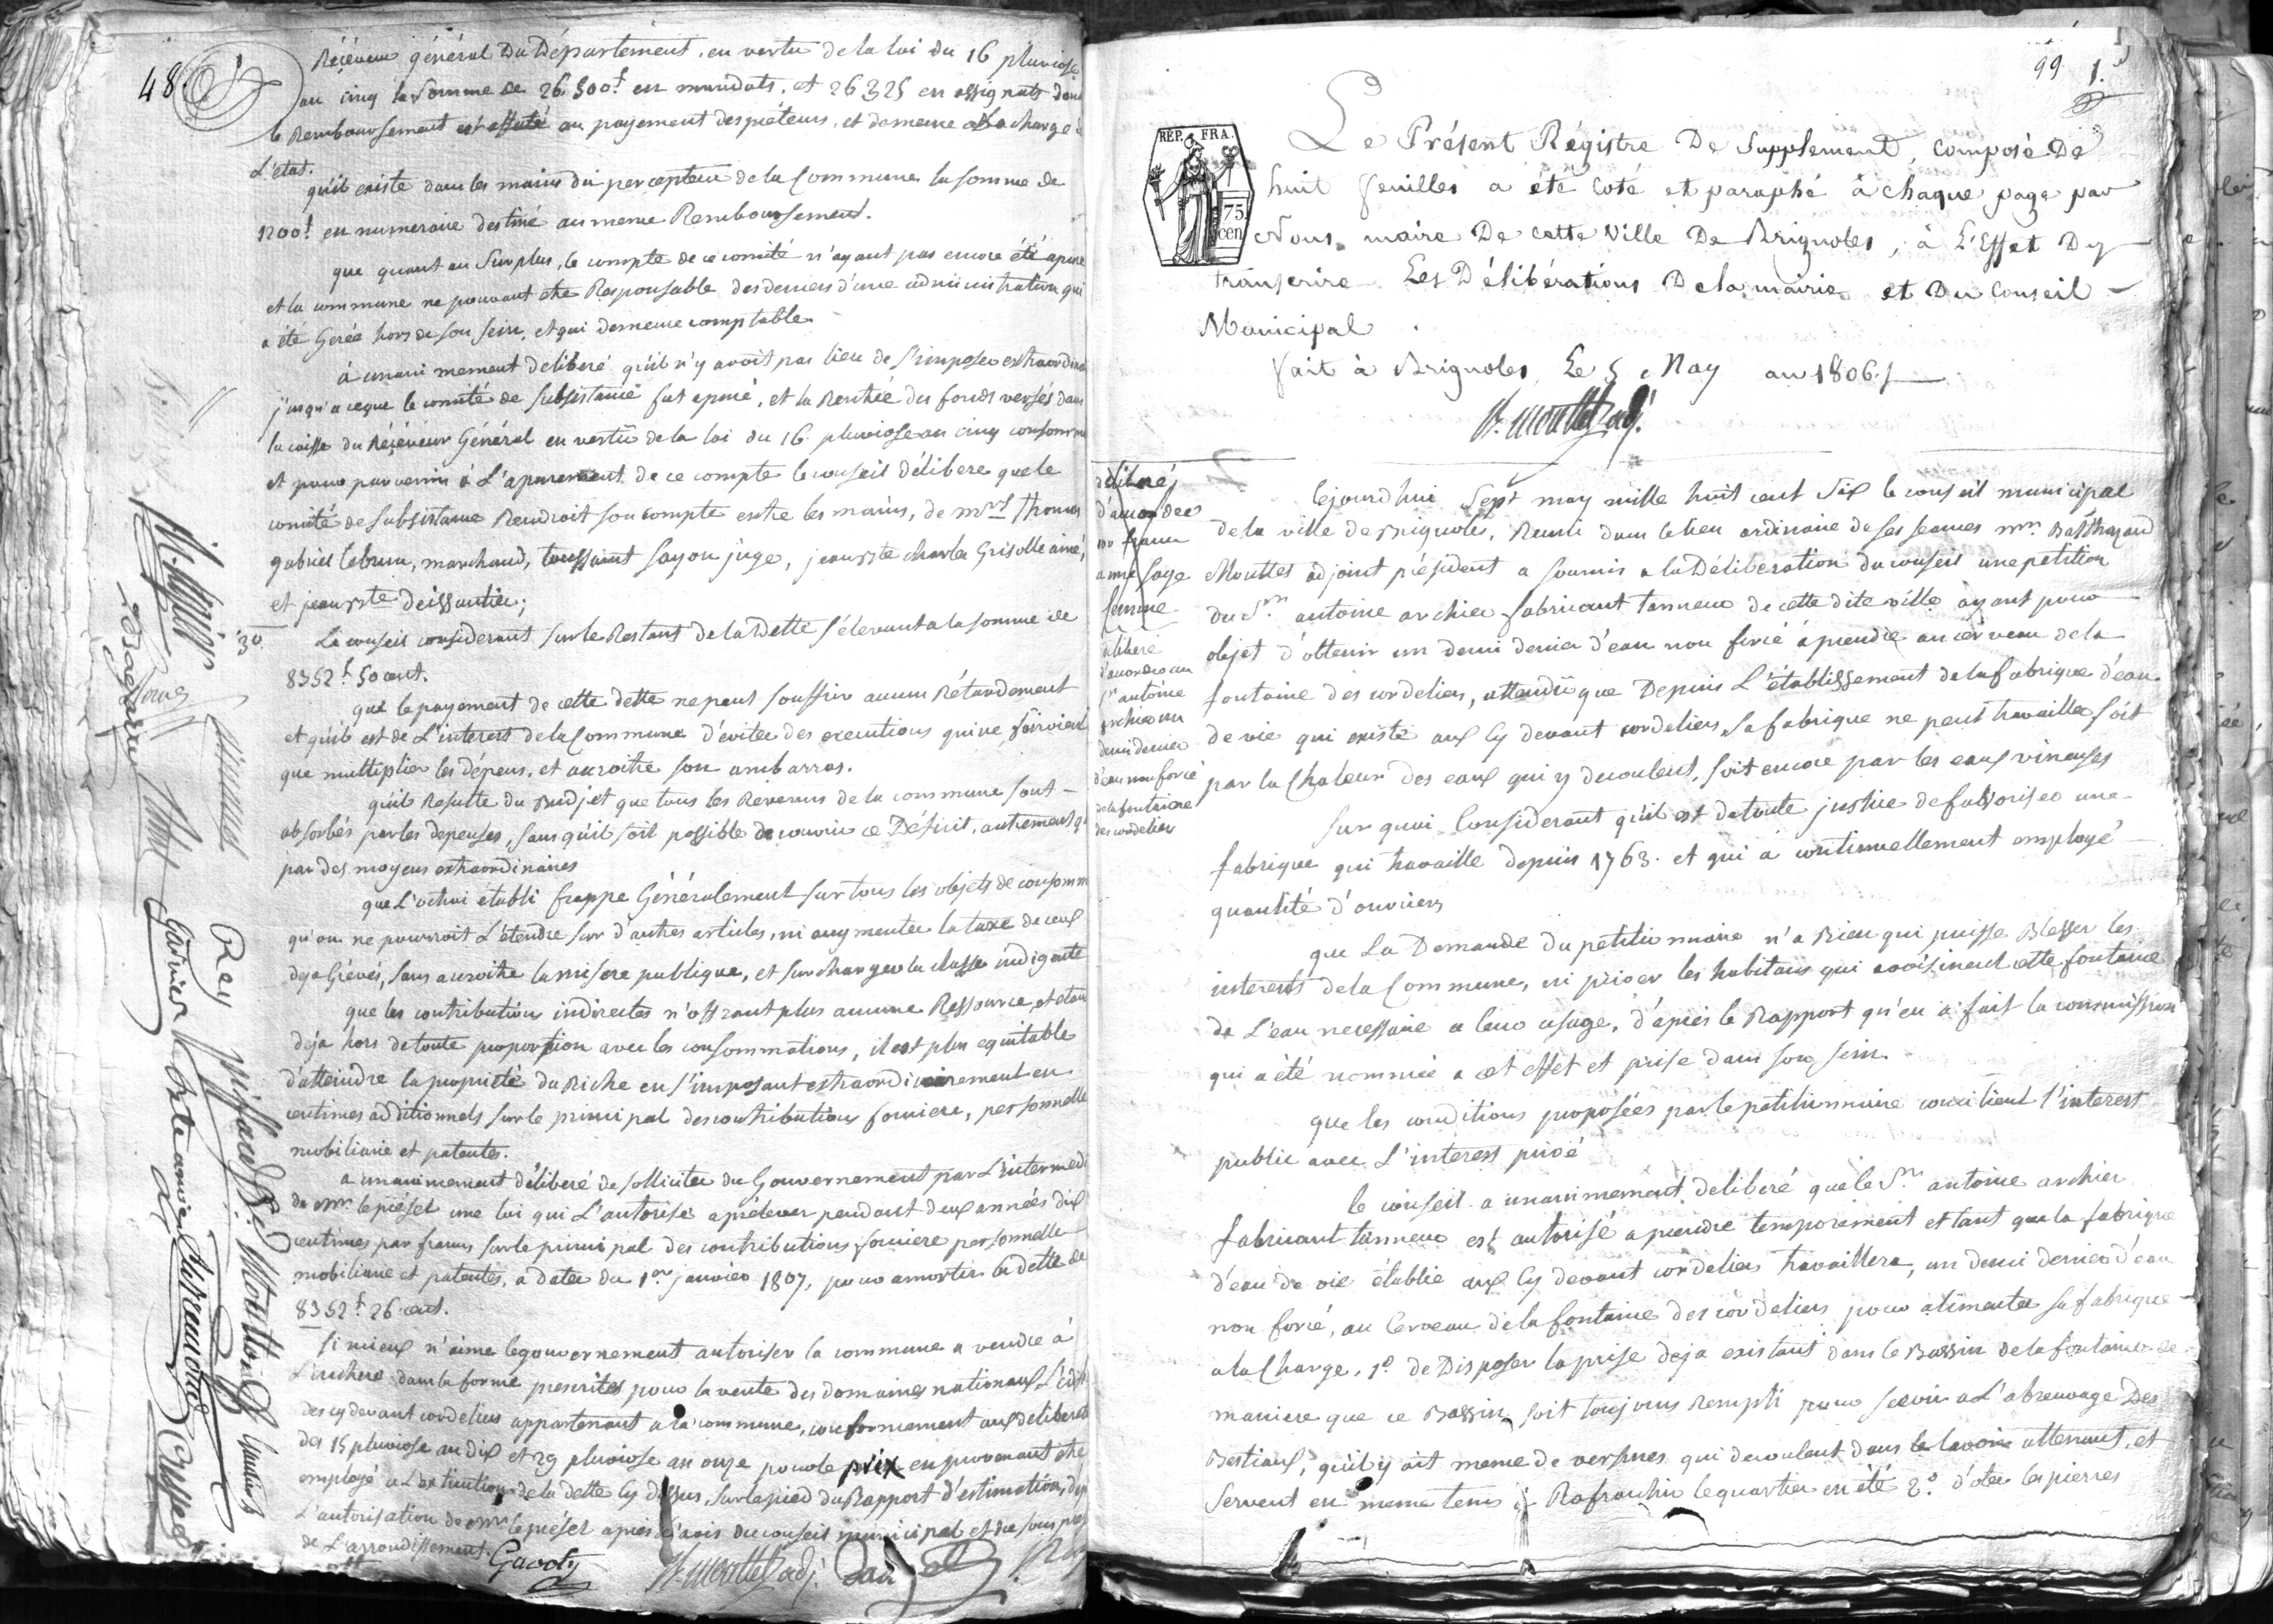 48.
Réçéveur général Du Département, en vertu de la loi du 16 pluviose
an cinq la somme de 26,500.f en mandats, et 26325 en assignats dont
le Remboursement est affecté au payement des préteurs, et demeure a la charge de
L'état.
qu'il existe dans les mains du percepteur de la Commune la somme de
1200.f en numeraire destiné au meme Remboursement.
que quant au Surplus, le compte de ce comité n'ayant pas encore été apuré
et la commune ne pouvant etre Responsable des deniers d'une administration qui
a été Gerée hors de son sein, et qui demeure comptable
à unanimement deliberé qu'il n'y avoit pas lieu de s'imposer extraordin
jusqu'a ceque le comité de subsistance fut apuré, et la Rentrée des fonds versés dans
la caisse du Réçéveur Général en vertu de la loi du 16. pluviose an cinq consommé
et pour parvenir à L'apurement de ce compte le conseil délibere que le
comité de subsistance Rendroit son compte entre les mains, de mrs. Thomas
gabriel lebrun, marchand, toussaint Fayon juge, jean Bte charles Grisolle ainé,
et jean Bte deissautier;
3o.
Le conseil considerant sur le Restant de la Dette s'elevant a la somme de
8352.f 50 cent.
que le payement de cette dette ne peut souffrir aucun Rétardement
et qu'il est de L'interest de la Commune d'éviter des executions qui ne feroient
que multiplier les dépens, et accroitre son ambarras.
qu'il Resulte du Budjet que tous les Revenus de la commune sont
absorbés par les depenses, sans qu'il soit possible de couvrir ce Déficit, autrement q
par des moyens extraordinaires
que L'octroi établi frappe Généralement sur tous les objets de consomm
qu'on ne pourroit L'étendre sur d'autres articles, ni augmenter la taxe de ceux
deja Grévés, sans accroitre la misere publique, et surcharger la classe indigente
que les contributions indirectes n'offrant plus aucune Ressource, et etant
déja hors de toute proportion avec les consommations, il est plus equitable
d'atteindre la proprieté du Riche en s'imposant extraordinairement en
centimes additionnels sur le principal des contributions fonciere, personnelle
mobiliaire et patentes.
a unanimement déliberé de solliciter du Gouvernement par L'intermed
de mr. le préfet une loi qui L'autorise a prélever pendant deux années dix
centimes par francs sur le principal des contributions fonciere personnelle
mobiliaire et patentes, a dater du 1er janvier 1807, pour amortir la dette de
8352.f 26 cent.
si mieux n'aime le gouvernement autoriser la commune a vendre à
L'enchere dans la forme prescrites pour la vente des domaines nationaux L'édif
des cy devant cordeliers appartenant a la commune, conformement aux deliberat
des 15 pluviose an dix et 29 pluviose an onze pour le prix en provenant etre
employé a L'extinction de la dette cy dessus, sur le pied du Rapport d'estimation, d'ap
L'autorisation de mr. le préfet apres L'avis du conseil municipal et du sous pref
de L'arrondissement.
Gavoty
Bd. Mouttet adj.
99 1.
REP. FRA.
75.
cen
Le Présent Régistre De Supplement, composé De
huit feuilles a été coté et paraphé à chaque page par
Nous maire De cette Ville De Brignoles, à L'Effet Dy
transcrire Les Délibérations De la mairie et Du Conseil
Municipal.
fait à Brignoles, Le 5 May an 1806./.
Bd. Mouttet adj.
déliberé
d'accorder
100 francs
a une sage
femme
délibéré
d'accorder au
sr antoine
archier un
demi denier
d'eau non forcé
de la fontaine
des cordeliers
Cejourd'hui Sept may mille huit cent Six le conseil municipal
de la ville de Brignoles, Reuni dans le lieu ordinaire de ses seances mr. Balthazard
Mouttet adjoint président a soumis a la Délibération du conseil une pétition
du Sr. antoine archier fabricant tanneur de cette dite ville ayant pour
objet d'obtenir un demi denier d'eau non forcé a prendre au cerveau de la
fontaine des cordeliers, attendu que Depuis L'établissement de la fabrique d'eau
de vie qui existe aux cy devant cordeliers, sa fabrique ne peut travailler soit
par la Chaleur des eaux qui y decoulent, soit encore par les eaux vineuses
sur quoi Considerant qu'il est de toute justice de favoriser une
fabrique qui travaille depuis 1763. et qui a continuellement employé
quantité d'ouvriers
que La Demande du petitionnaire n'a Rien qui puisse Blesser les
interests de la Commune, ni priver les habitans qui avoisinent cette fontaine
de L'eau necessaire a leur usage, d'après le Rapport qu'en a fait la commission
qui a été nommée a cet effet et prise dans son sein.
que les conditions proposées par le pétitionnaire concilient l'interest
public avec L'interest privé
le conseil a unanimement deliberé que le Sr. antoine archier
fabricant tanneur est autorisé a prendre temporement et tant que la fabrique
d'eau de vie établie aux cy devant cordeliers travaillera, un demi denier d'eau
non forcé, au Cerveau de la fontaine des cordeliers pour alimenter sa fabrique
a la Charge, 1o. de Disposer la prise deja existant dans le Bassin de la fontaine de
maniere que ce Bassin soit toujours Rempli pour servir a L'abreuvage Des
Bestiaux, qu'il y ait meme de versures qui decoulent dans le lavoir attenant, et
servent en meme tems à Rafraichir le quartier en été 2o. d'oter les pierres